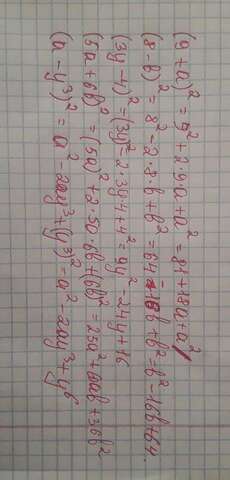 (9 + a)² = 9² + 2·9·a + a² = 81 + 18a + a²
(8 - b)² = 8² - 2·8·b + b² = 64 - 16b + b² = b² - 16b + 64.
(3y - 4)² = (3y)² - 2·3y·4 + 4² = 9y² - 24y + 16
(5a + 6b)² = (5a)² + 2·5a·6b + (6b)² = 25a² + 60ab + 36b²
(a - y³)² = a² - 2ay³ + (y³)² = a² - 2ay³ + y⁶